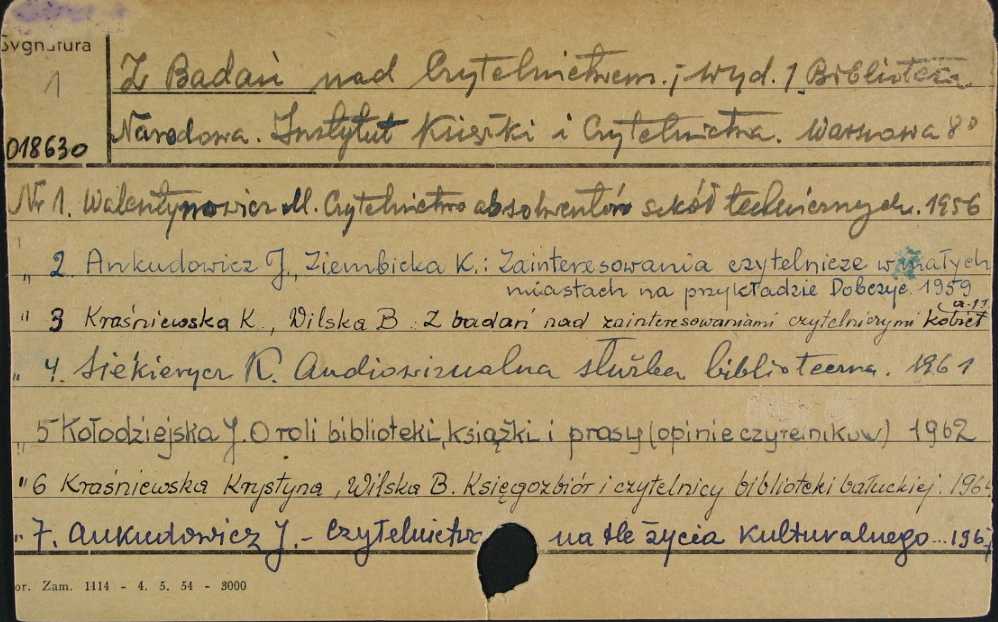 Sygnatura
1
018630
Z Badań nad Czytelnictwem.; wyd. 1 Biblioteka
Narodowa. Instytut Książki i Czytelnictwa. Warszawa 8°
Nr 1. Walentynowicz M. Czytelnictwo absolwentów szkół technicznych. 1956
" 2. Ankudowicz J., Ziembicka K.: Zainteresowania czytelnicze w małych
miastach na przykładzie Dobczyc. 1959
" 3 Kraśniewska K., Wilska B. Z badań nad zainteresowaniami czytelniczymi kobiet
" 4. Siekierycz K. Audiowizualna służba biblioteczna. 1961
" 5 Kołodziejska J. O roli biblioteki, książki i prasy (opinie czytelników) 1962
" 6 Kraśniewska Krystyna, Wilska B. Księgozbiór i czytelnicy biblioteki bałuckiej.
" 7. Ankudowicz J. - Czytelnictwo na tle życia kulturalnego...
or. Zam. 1114 - 4. 5. 54 - 3000